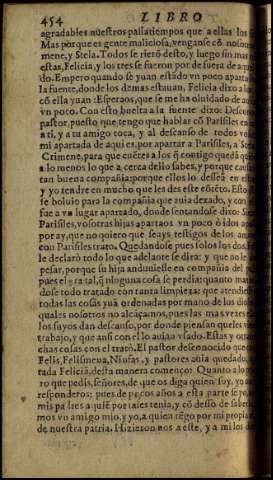 454 LIBRO
agradables nuestros passatiempos que a ellas los
Mas porque es gente maliciosa, venganse cō nosotr
mene, y Stela. Todos se rierō desto, y luego sin mas
estas, Felicia, y los tres se fueron por de fuera de aqu
do. Empero quando se yuan estãdo vn poco aparta
la fuente, donde los demas estauan, Felicia dixo a los
cō ella yuan: Esperaos, que se me ha oluidado de aui
vn poco. Con esto buelta a la fuente dixo: Descono
pastor, puesto que tengo que hablar cō Parisiles ra
a ti, y a tu amigo toca, y al descanso de todos volu
mi apartada de aqui es, por apartar a Parisiles, a Stela
Crimene, para que cuētes a los q̃ contigo quedā qui
a lo menos lo que a cerca dello sabes, y porque cau
tan buena compañia, porque ellos lo desseā en est
y yo tendre en mucho que les des este cōtēto. Esto
se boluio para la compañia que auia dexado, y con
fue a vn lugar apartado, donde sentandose dixo: Se
Parisiles, vosotras hijas apartaos vn poco ò idos a
por ay, que no quiero que seays testigos de los am
con Parisiles trato. Quedandose pues solos los dos, F
le declarò todo lo que adelante se dira: y que no le
pesar, porque su hija anduuiesse en compañia del p
pues el era tal, q̃ ninguna cosa se perdia: quanto mas
dose todo tratado con tanta limpieza: que atendie
todas las cosas yuā ordenadas por mano de los dio
quales nosotros no alcāçamos, pues las mas vezes
los suyos dan descanso, por donde piensan queles vi
trabajo, y que ansi con el lo auiāa vsado. Estas y otras
chas cosas con el tratò. El pastor desconocido que c
Felis, Felismena, Ninfas, y pastores auia quedado,
tada Felicia, desta manera començò: Quanto a lo p
ro que pedis, señores, de que os diga quien soy, yo
responderos: pues de pocos años a esta parte se yo,
mis padres a quiē por tales tenia, y cō desseo de saber
mos vn amigo mio, y yo, a quien tēgo por mi propia
de nuestra patria. Hizieron nos a este, y a mi los d